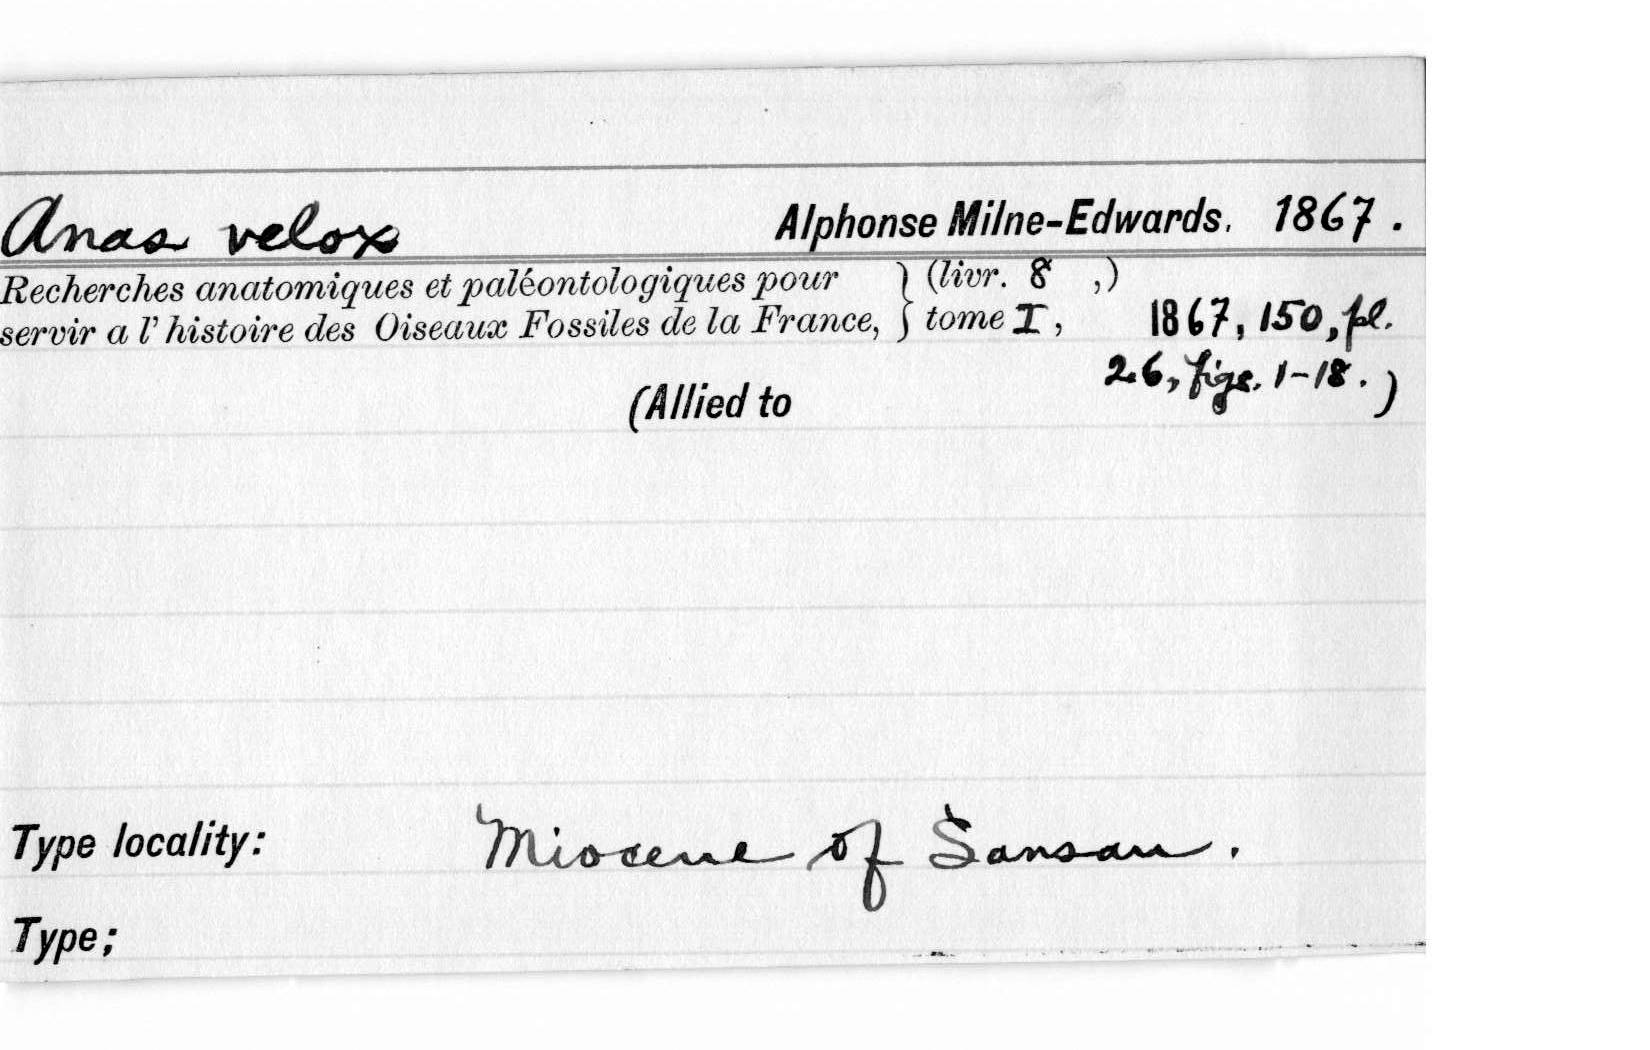 Anas velox Alphonse Milne-Edwards, 1867.
Recherches anatomiques et paléontologiques pour } (livr. 8 ,)
servir a l' histoire des Oiseaux Fossiles de la France, } tome I, 1867, 150, pl.
26, figs. 1-18.
(Allied to )
Type locality: Miocene of Sansan.
Type;